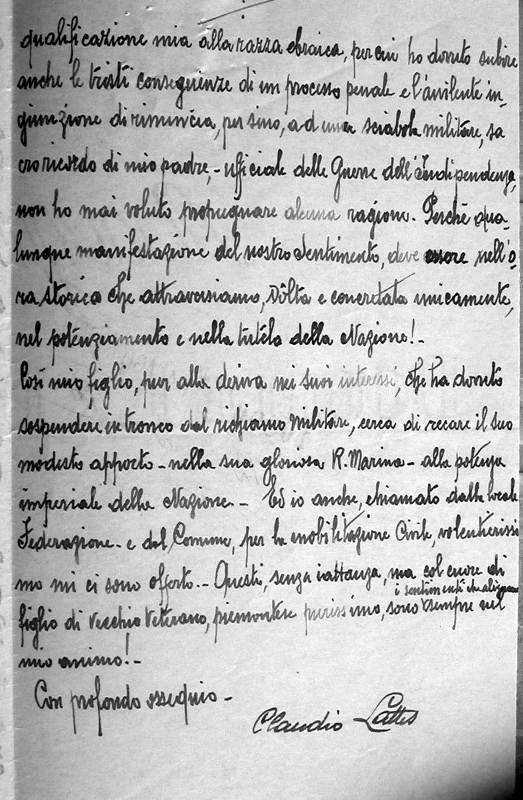 qualificazione mia alla razza ebraica, per cui ho dovuto subire
anche le tristi conseguenze di un processo penale e l'avvilente in-
giunzione di rinuncia, per sino, ad una sciabola militare, sa
cro ricordo di mio padre, - ufficiale delle Guerre dell'Indipendenza,
non ho mai voluto propugnare alcuna ragione. Perchè qua-
lunque manifestazione del nostro sentimento, deve essere nell'o
ra storica che attraversiamo, vòlta e concretata unicamente,
nel potenziamento e nella tutela della Nazione! -
Così mio figlio, pur alla deriva nei suoi interessi, che ha dovuto
sospendere in tronco dal richiamo militare, cerca di recare il suo
modesto apporto - nella sua gloriosa R. Marina - alla potenza
imperiale della Nazione. - Ed io anche, chiamato dalla locale
Federazione - e dal Comune, per la mobilitazione Civile, volentieris
mo mi ci sono offerto. - Questi, senza iattanza, ma col cuore di
i sentimenti che
figlio di vecchio Veterano, piemontese purissimo, sono sempre nel
mio animo! -
Con profondo ossequio -
Claudio Lattes